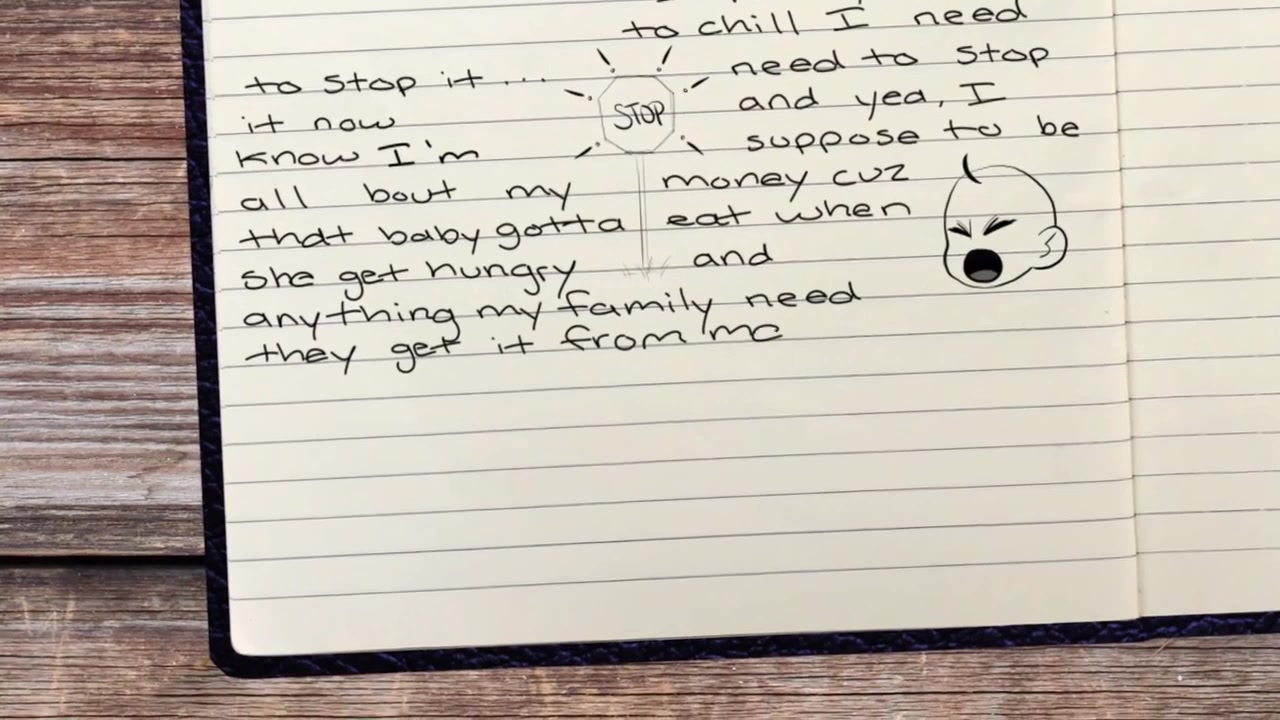 to chill I need
to stop it... need to stop
STOP
it now and yea, I
know I'm suppose to be
all bout my money cuz
that baby gotta eat when
she get hungry and
anything my family need
they get it from me